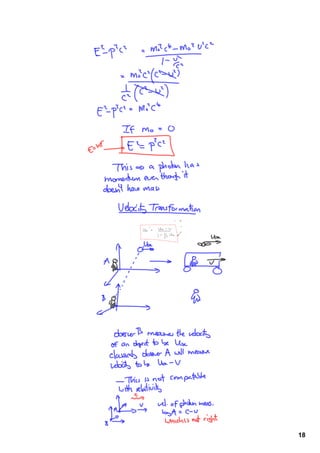 E²-p²c² = m₀²c⁴ - m₀²u²c² / 1 - u²/c²
= m₀²c²(c²-u²) / 1/c² (c²-u²)
E²-p²c² = m₀²c⁴
If m₀ = 0
E² = p²c²
This is a photon has
momentum even though it
doesn't have mass
Velocity Transformation
Ux
Ux
A
V
B
observer B measures the velocity
of an object to be Ux
classically observer A will measure
velocity to be Ux - V
- This is not compatible
with relativity
c
A
V
vel. of photon meas.
by A = c - v
which is not right
B
18